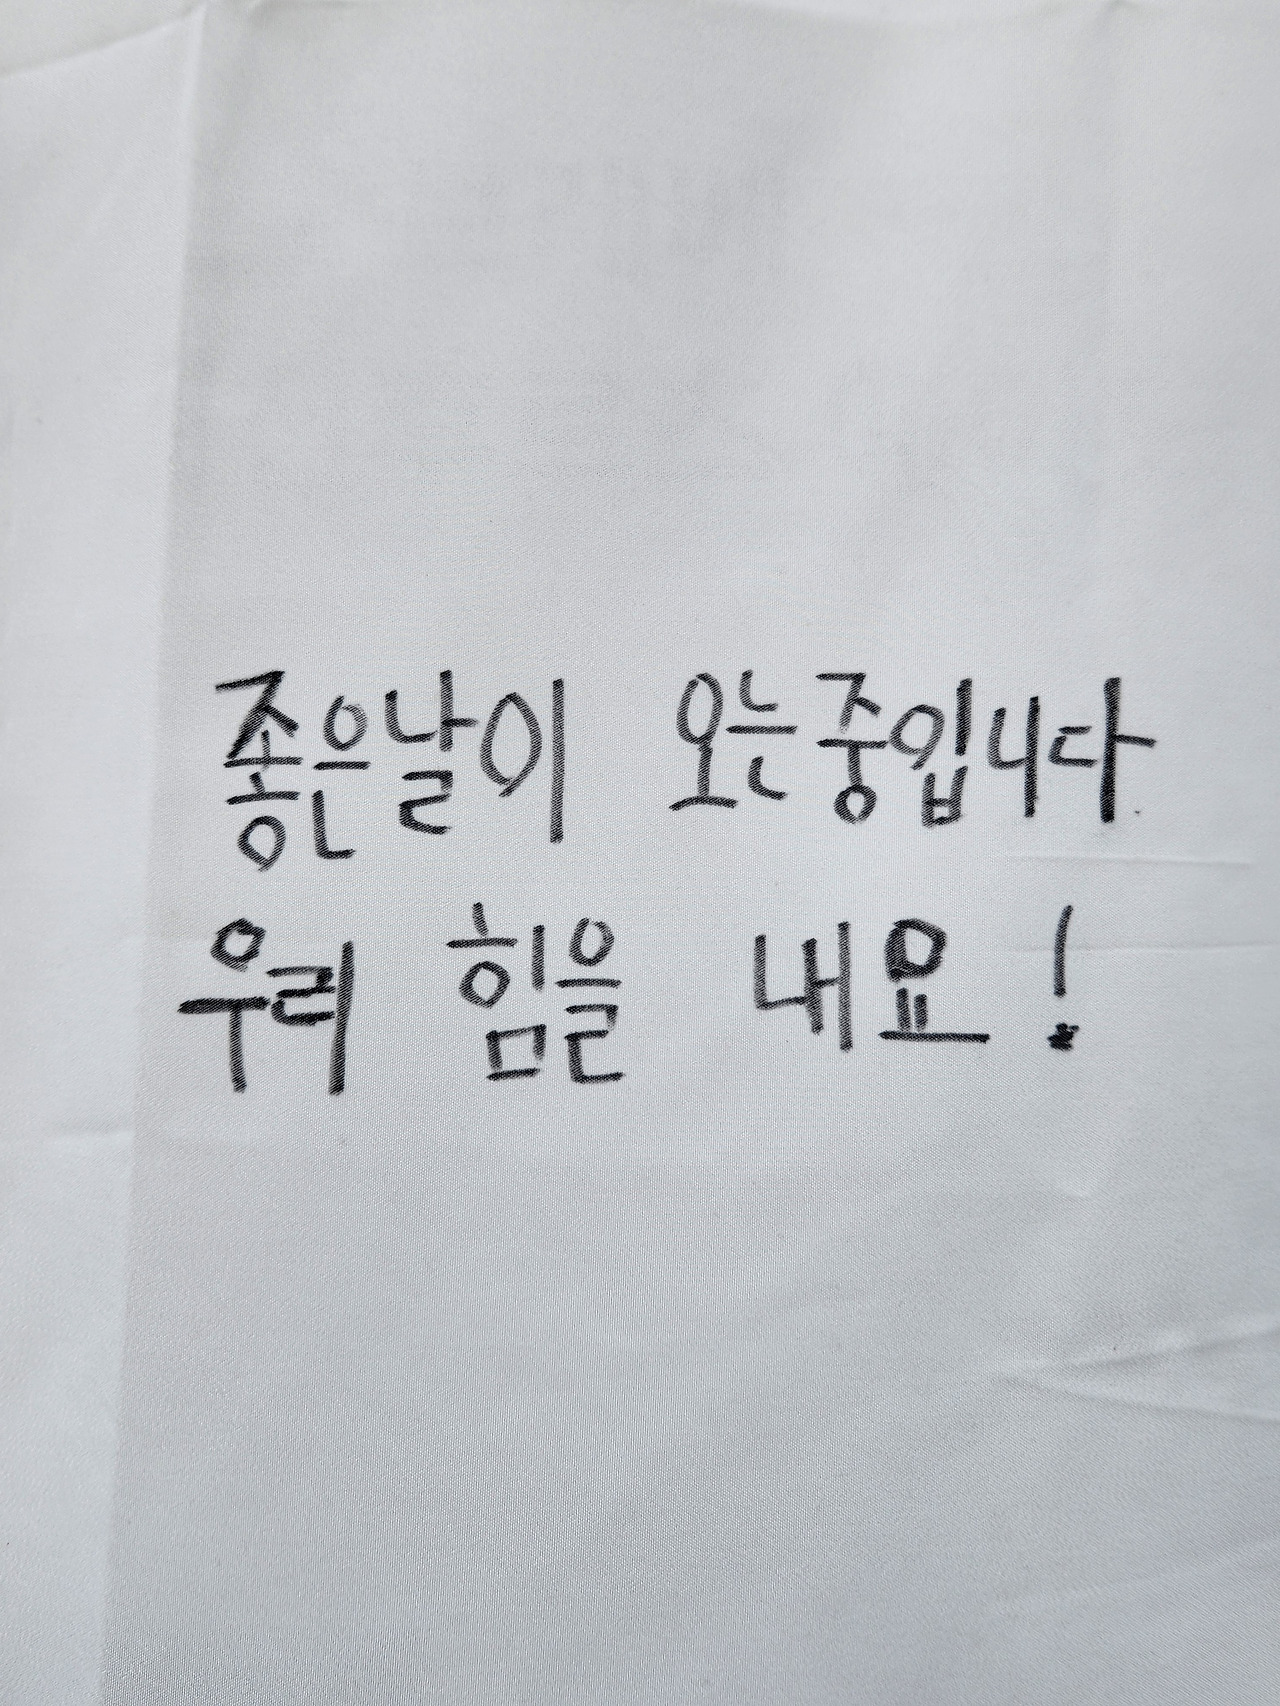 좋은날이 오는중입니다.
우리 힘을 내요!